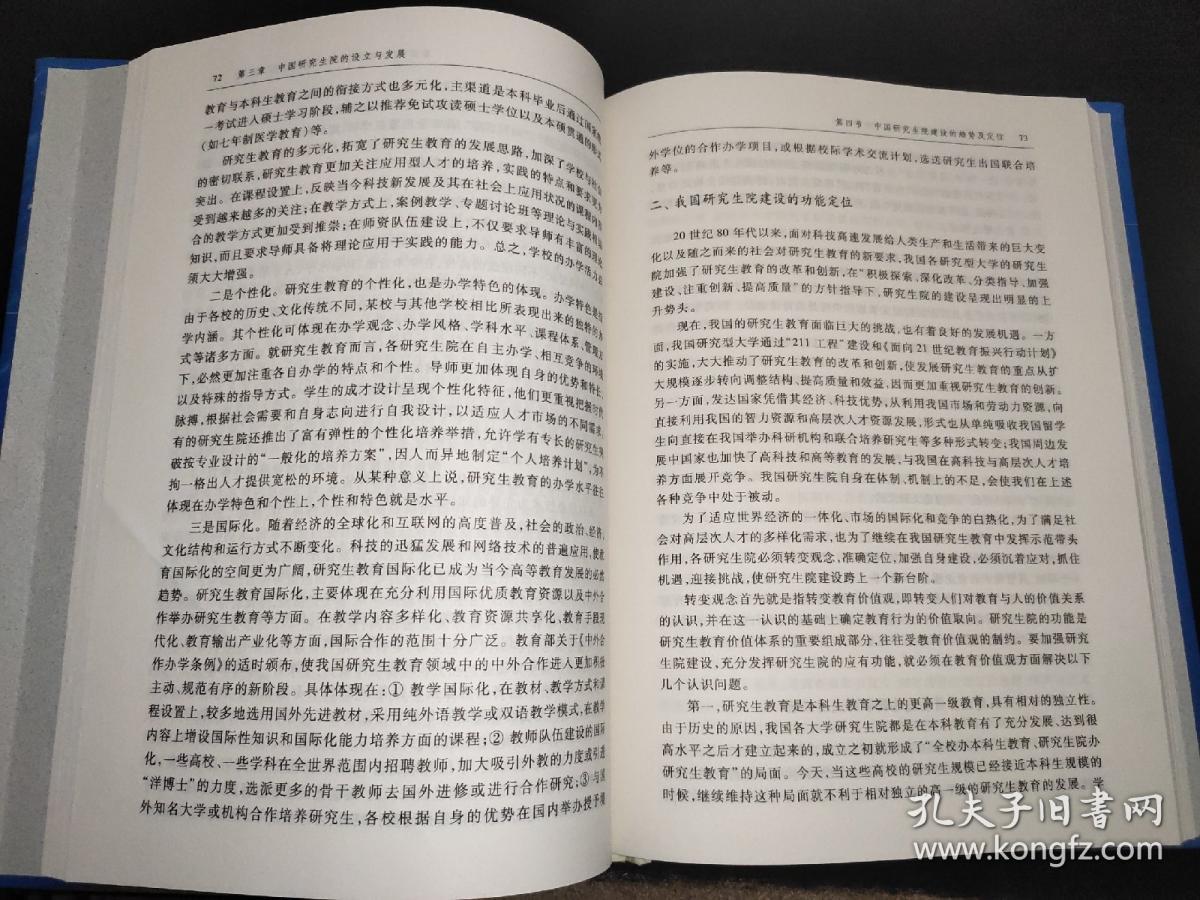 72 第三章 中国研究生院的设立与发展
教育与本科生教育之间的衔接方式也多元化,主渠道是本科毕业后通过国家统
一考试进入硕士学习阶段,辅之以推荐免试攻读硕士学位以及本硕贯通的形式
(如七年制医学教育)等。
研究生教育的多元化,拓宽了研究生教育的发展思路,加深了学校与社会
的密切联系,研究生教育更加关注应用型人才的培养,实践的特点和要求更加
突出。在课程设置上,反映当今科技新发展及其在社会上应用状况的课程内容
受到越来越多的关注;在教学方式上,案例教学、专题讨论班等理论与实践相结
合的教学方式更加受到推崇;在师资队伍建设上,不仅要求导师有丰富的理论
知识,而且要求导师具备将理论应用于实践的能力。总之,学校的办学活力必
须大大增强。
二是个性化。研究生教育的个性化,也是办学特色的体现。办学特色是指
由于各校的历史、文化传统不同,某校与其他学校相比所表现出来的独特的办
学内涵。其个性化可体现在办学观念、办学风格、学科水平、课程体系、管理方
式等诸多方面。就研究生教育而言,各研究生院在自主办学、相互竞争的环境
下,必然更加注重各自办学的特点和个性。导师更加体现自身的优势和特长,
以及特殊的指导方式。学生的成才设计呈现个性化特征,他们更重视把握时代
脉搏,根据社会需要和自身志向进行自我设计,以适应人才市场的不同需求,
有的研究生院还推出了富有弹性的个性化培养举措,允许学有专长的研究生突
破按专业设计的“一般化的培养方案”,因人而异地制定“个人培养计划”,为不
拘一格出人才提供宽松的环境。从某种意义上说,研究生教育的办学水平往往
体现在办学特色和个性上,个性和特色就是水平。
三是国际化。随着经济的全球化和互联网的高度普及,社会的政治、经济、
文化结构和运行方式不断变化。科技的迅猛发展和网络技术的普遍应用,使教
育国际化的空间更为广阔,研究生教育国际化已成为当今高等教育发展的必然
趋势。研究生教育国际化,主要体现在充分利用国际优质教育资源以及中外合
作举办研究生教育等方面。在教学内容多样化、教育资源共享化、教育手段现
代化、教育输出产业化等方面,国际合作的范围十分广泛。教育部关于《中外合
作办学条例》的适时颁布,使我国研究生教育领域中的中外合作进入更加积极
主动、规范有序的新阶段。具体体现在:① 教学国际化,在教材、教学方式和课
程设置上,较多地选用国外先进教材,采用纯外语教学或双语教学模式,在教学
内容上增设国际性知识和国际化能力培养方面的课程;② 教师队伍建设的国际
化,一些高校、一些学科在全世界范围内招聘教师,加大吸引外教的力度或引进
“洋博士”的力度,选派更多的骨干教师去国外进修或进行合作研究;③ 与国
外知名大学或机构合作培养研究生,各校根据自身的优势在国内举办授予境
第四节 中国研究生院建设的趋势及定位 73
外学位的合作办学项目,或根据校际学术交流计划,选送研究生出国联合培
养等。
二、我国研究生院建设的功能定位
20 世纪 80 年代以来,面对科技高速发展给人类生产和生活带来的巨大变
化以及随之而来的社会对研究生教育的新要求,我国各研究型大学的研究生
院加强了研究生教育的改革和创新,在“积极探索、深化改革、分类指导、加强
建设、注重创新、提高质量”的方针指导下,研究生院的建设呈现出明显的上
升势头。
现在,我国的研究生教育面临巨大的挑战,也有着良好的发展机遇。一方
面,我国研究型大学通过“211 工程”建设和《面向 21 世纪教育振兴行动计划》
的实施,大大推动了研究生教育的改革和创新,使发展研究生教育的重点从扩
大规模逐步转向调整结构、提高质量和效益,因而更加重视研究生教育的创新。
另一方面,发达国家凭借其经济、科技优势,从利用我国市场和劳动力资源,向
直接利用我国的智力资源和高层次人才资源发展,形式也从单纯吸收我国留学
生向直接在我国举办科研机构和联合培养研究生等多种形式转变;我国周边发
展中国家也加快了高科技和高等教育的发展,与我国在高科技与高层次人才培
养方面展开竞争。我国研究生院自身在体制、机制上的不足,会使我们在上述
各种竞争中处于被动。
为了适应世界经济的一体化、市场的国际化和竞争的白热化,为了满足社
会对高层次人才的多样化需求,也为了继续在我国研究生教育中发挥示范带头
作用,各研究生院必须转变观念,准确定位,加强自身建设,必须沉着应对,抓住
机遇,迎接挑战,使研究生院建设跨上一个新台阶。
转变观念首先就是指转变教育价值观,即转变人们对教育与人的价值关系
的认识,并在这一认识的基础上确定教育行为的价值取向。研究生院的功能是
研究生教育价值体系的重要组成部分,往往受教育价值观的制约。要加强研究
生院建设,充分发挥研究生院的应有功能,就必须在教育价值观方面解决以下
几个认识问题。
第一,研究生教育是本科生教育之上的更高一级教育,具有相对的独立性。
由于历史的原因,我国各大学研究生院都是在本科教育有了充分发展、达到很
高水平之后才建立起来的,成立之初就形成了“全校办本科生教育、研究生院办
研究生教育”的局面。今天,当这些高校的研究生规模已经接近本科生规模的
时候,继续维持这种局面就不利于相对独立的高一级的研究生教育的发展。学
孔夫子旧书网
www.kongfz.com